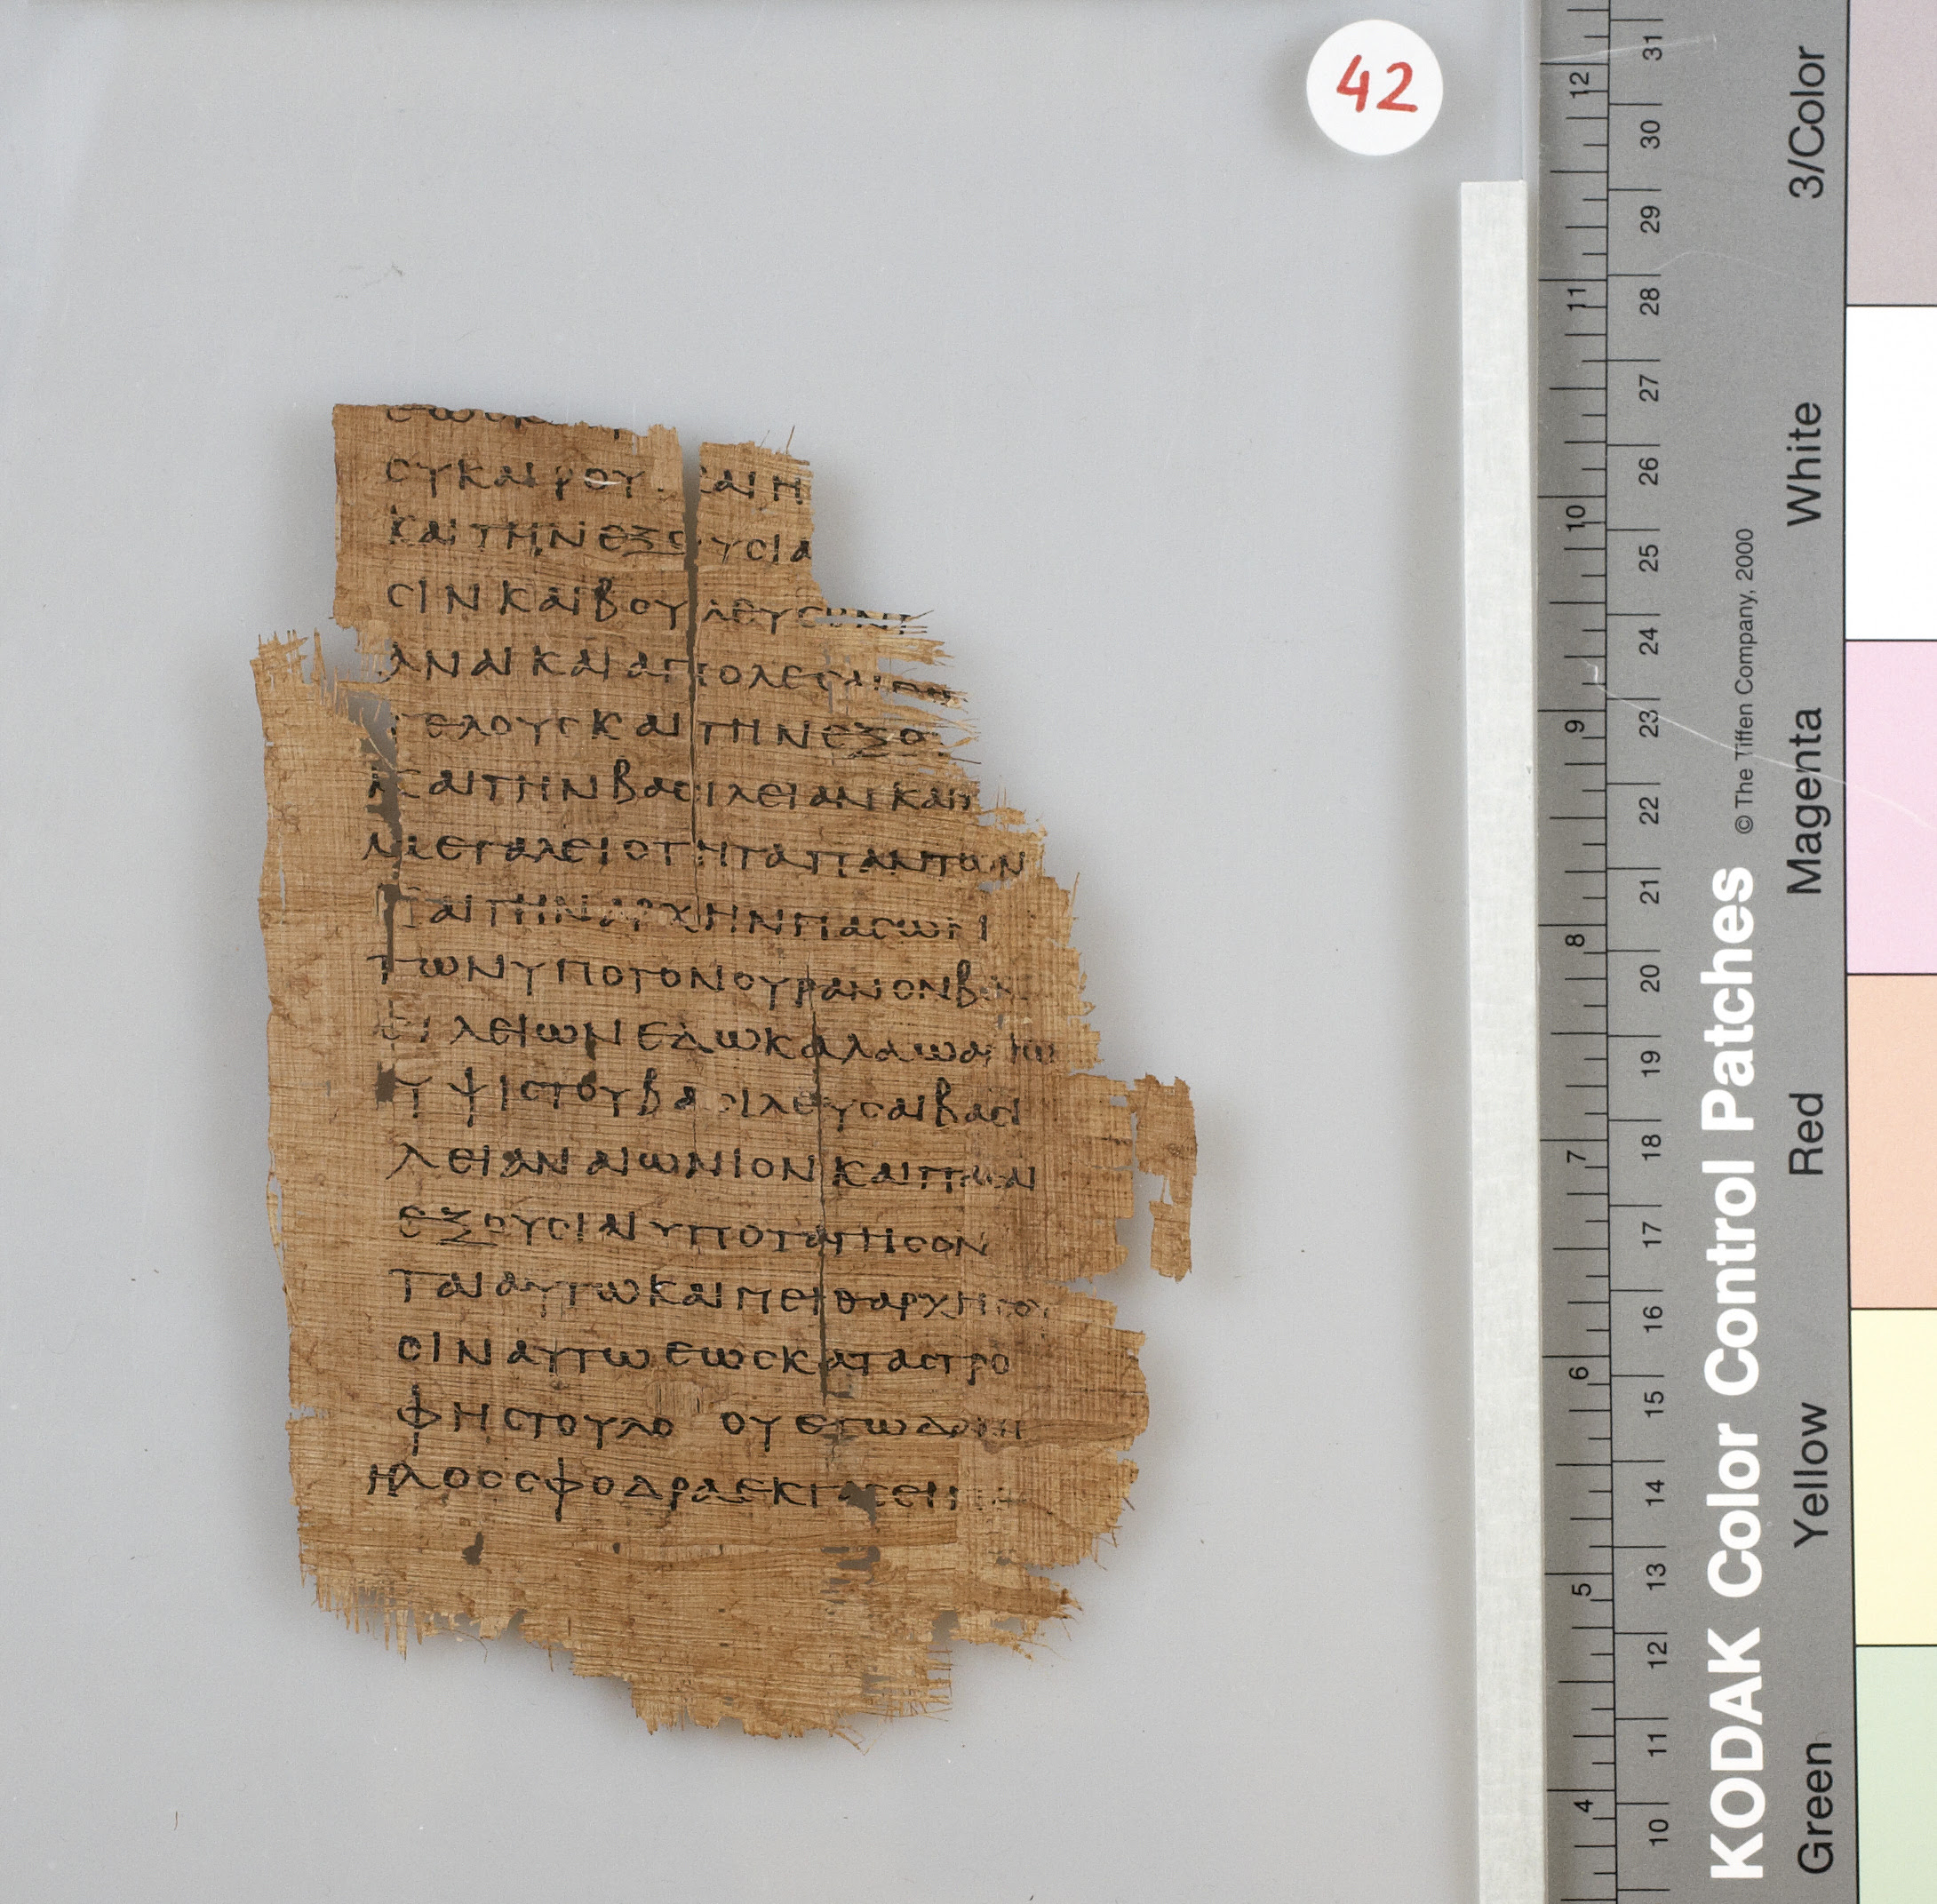 42
ΣΥΚΑΙΡΟΥ ΚΑΙ Η
ΚΑΙΤΗΝΕΞΟΥΣΙΑ
ΣΙΝΚΑΙΒΟΥΛΕΥΣΟΝΤ
ΑΝΑΙΚΑΙΑΠΟΛΕΣΑΙ
ΤΕΛΟΥΣΚΑΙΤΗΝΕΞΟ
ΚΑΙΤΗΝΒΑΣΙΛΕΙΑΝΚΑΙΤ
ΜΕΓΑΛΕΙΟΤΗΤΑΠΑΝΤΩΝ
ΚΑΙΤΗΝΑΡΧΗΝΠΑΣΩΝ
ΤΩΝΥΠΟΤΟΝΟΥΡΑΝΟΝΒΑ
ΣΙΛΕΙΩΝΕΔΩΚΑΛΑΩΑΓΙΩ
ΥΨΙΣΤΟΥΒΑΣΙΛΕΥΣΑΙΒΑΣΙ
ΛΕΙΑΝΑΙΩΝΙΟΝΚΑΙΠΑΣΑΙ
ΕΞΟΥΣΙΑΙΥΠΟΤΑΓΗΣΟΝ
ΤΑΙΑΥΤΩΚΑΙΠΕΙΘΑΡΧΗΣΟΥ
ΣΙΝΑΥΤΩΕΩΣΚΑΤΑΣΤΡΟ
ΦΗΣΤΟΥΛΟ ΟΥΕΓΩΔΑΝΙ
ΗΛΟΣΣΦΟΔΡΑΕΚΣΤΑΣΕΙ
KODAK Color Control Patches © The Tiffen Company, 2000
Green Yellow Red Magenta White 3/Color
4 5 6 7 8 9 10 11 12
10 11 12 13 14 15 16 17 18 19 20 21 22 23 24 25 26 27 28 29 30 31